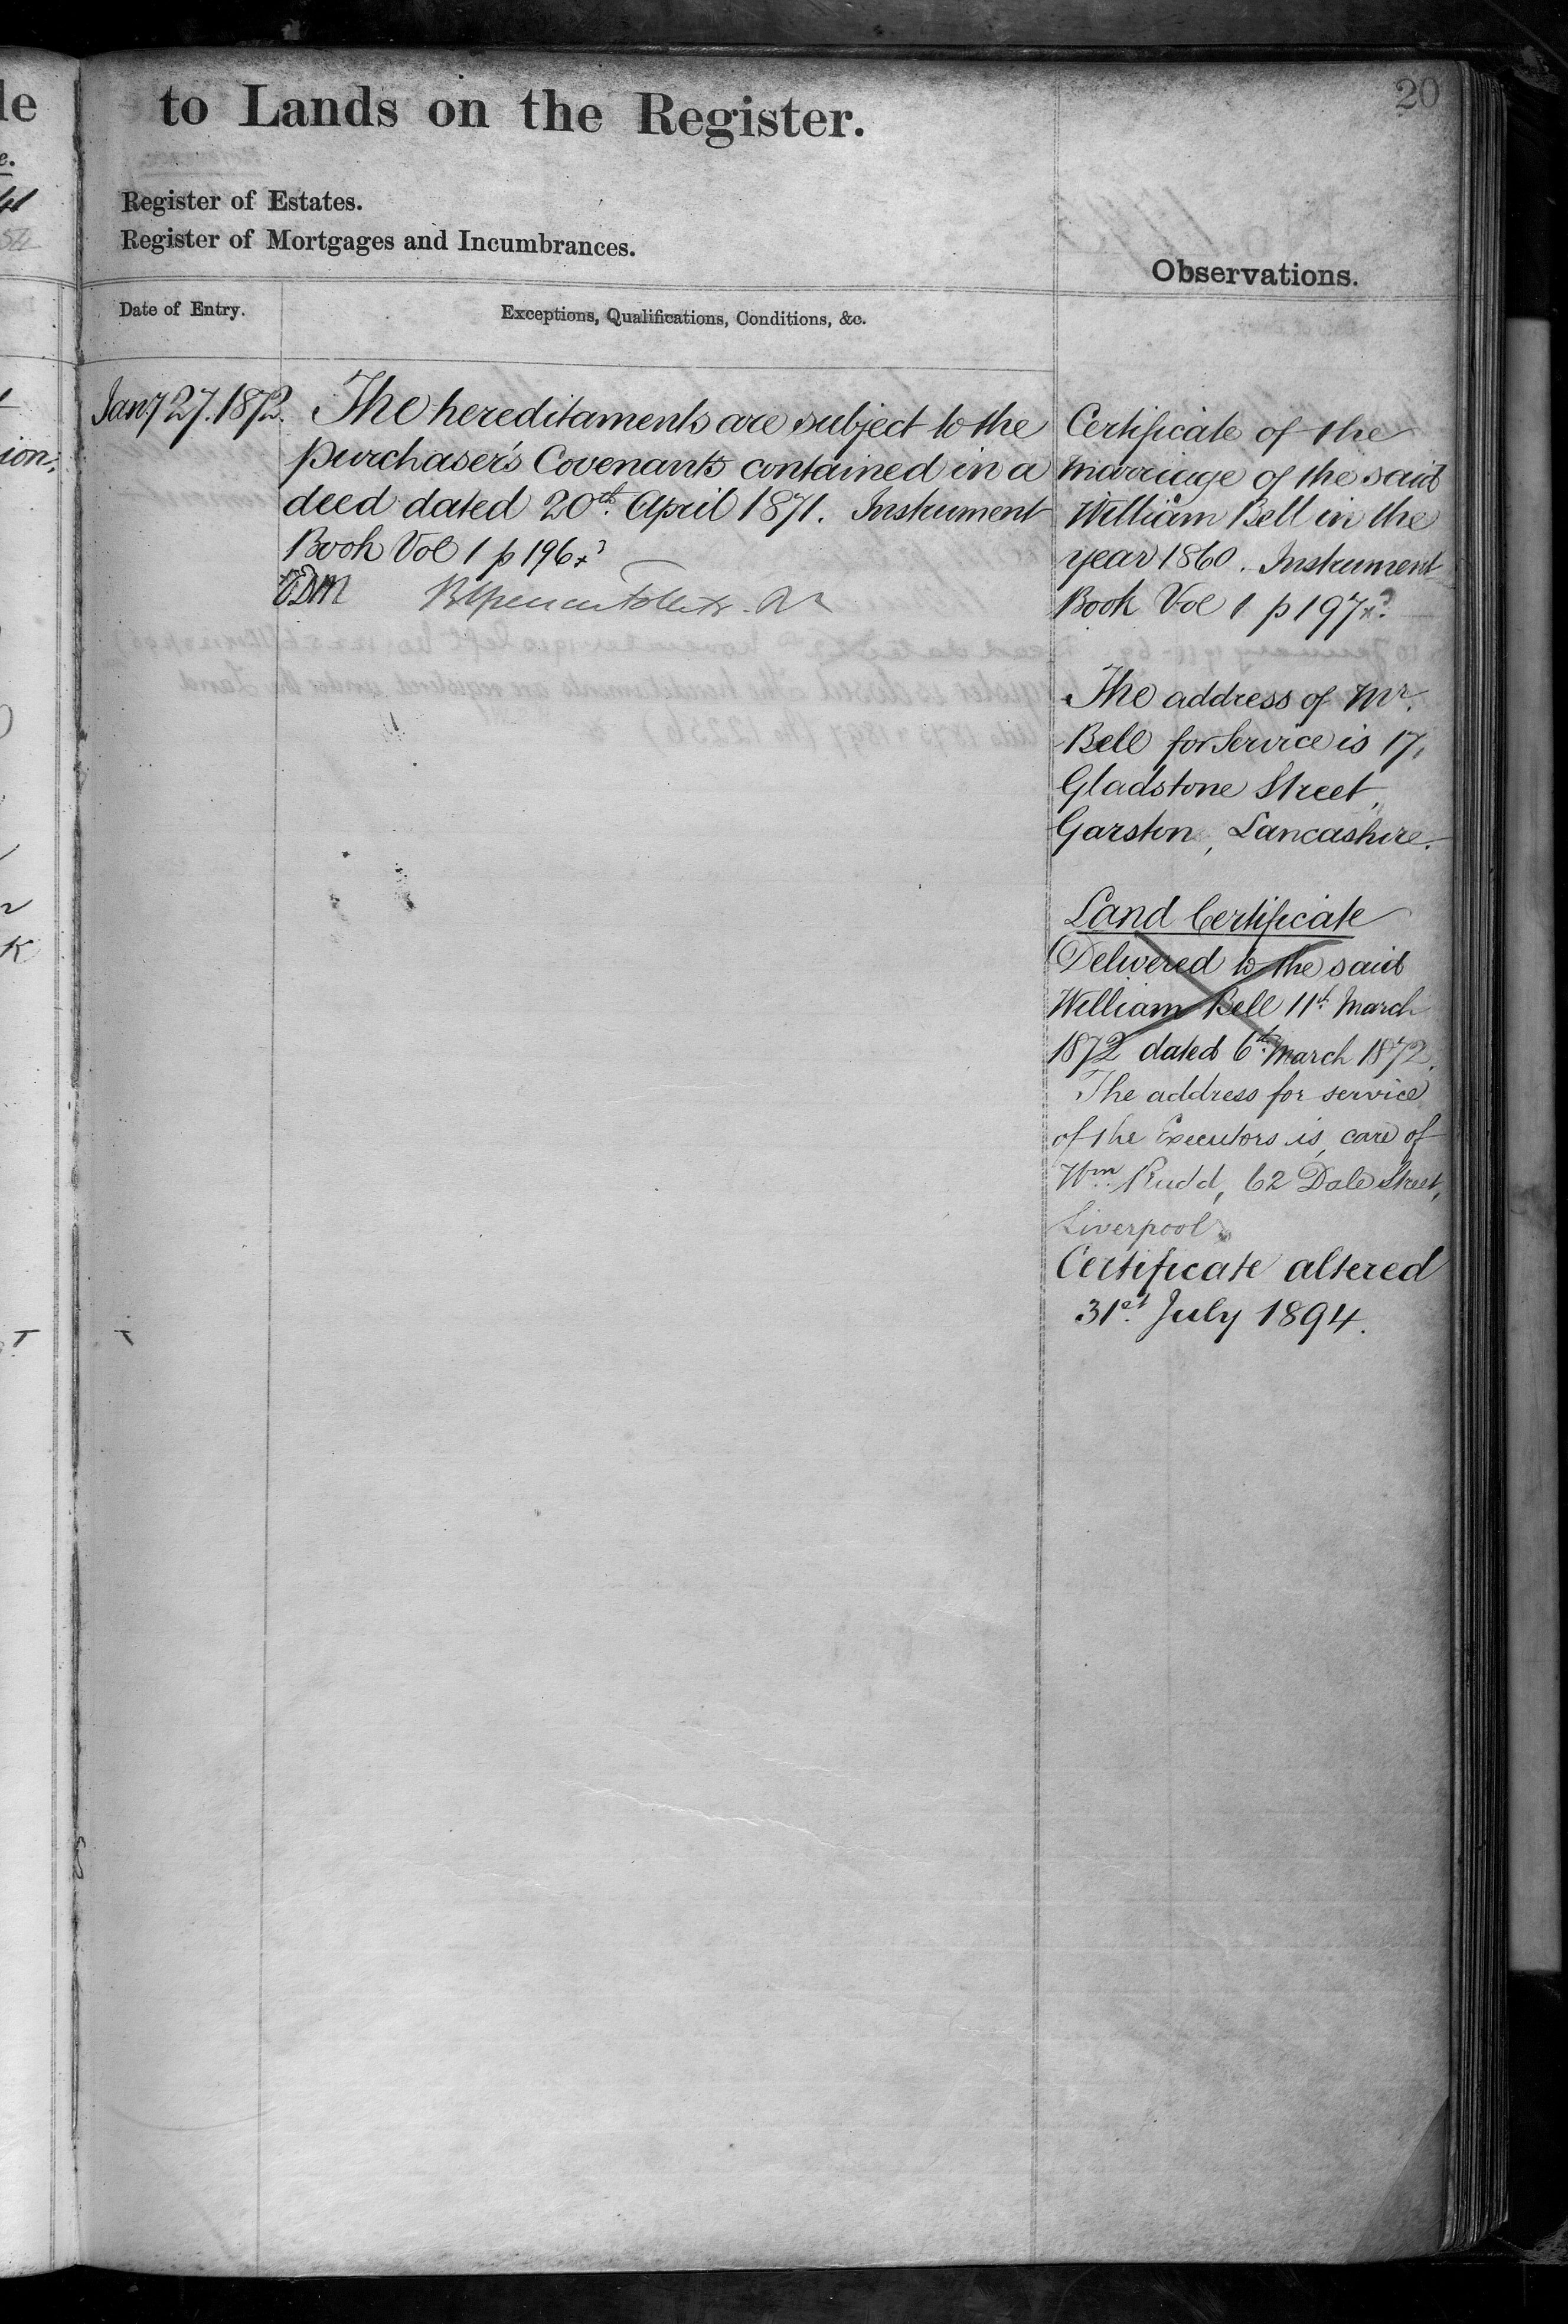 20
to Lands on the Register.
Register of Estates.
Register of Mortgages and Incumbrances.
Observations.
Date of Entry.
Exceptions, Qualifications, Conditions, &c.
Jany 27. 1872.
The hereditaments are subject to the
purchaser's Covenants contained in a
deed dated 20th April 1871. Instrument
Book Vol 1 p 196
Certificate of the
marriage of the said
William Bell in the
year 1860. Instrument
Book Vol 1 p 197
The address of Mr.
Bell for Service is 17,
Gladstone Street,
Garston, Lancashire.
Land Certificate
Delivered to the said
William Bell 11th March
1872 dated 6th March 1872.
The address for service
of the Executors is, care of
Wm. Rudd, 62 Dale Street,
Liverpool
Certificate altered
31st July 1894.